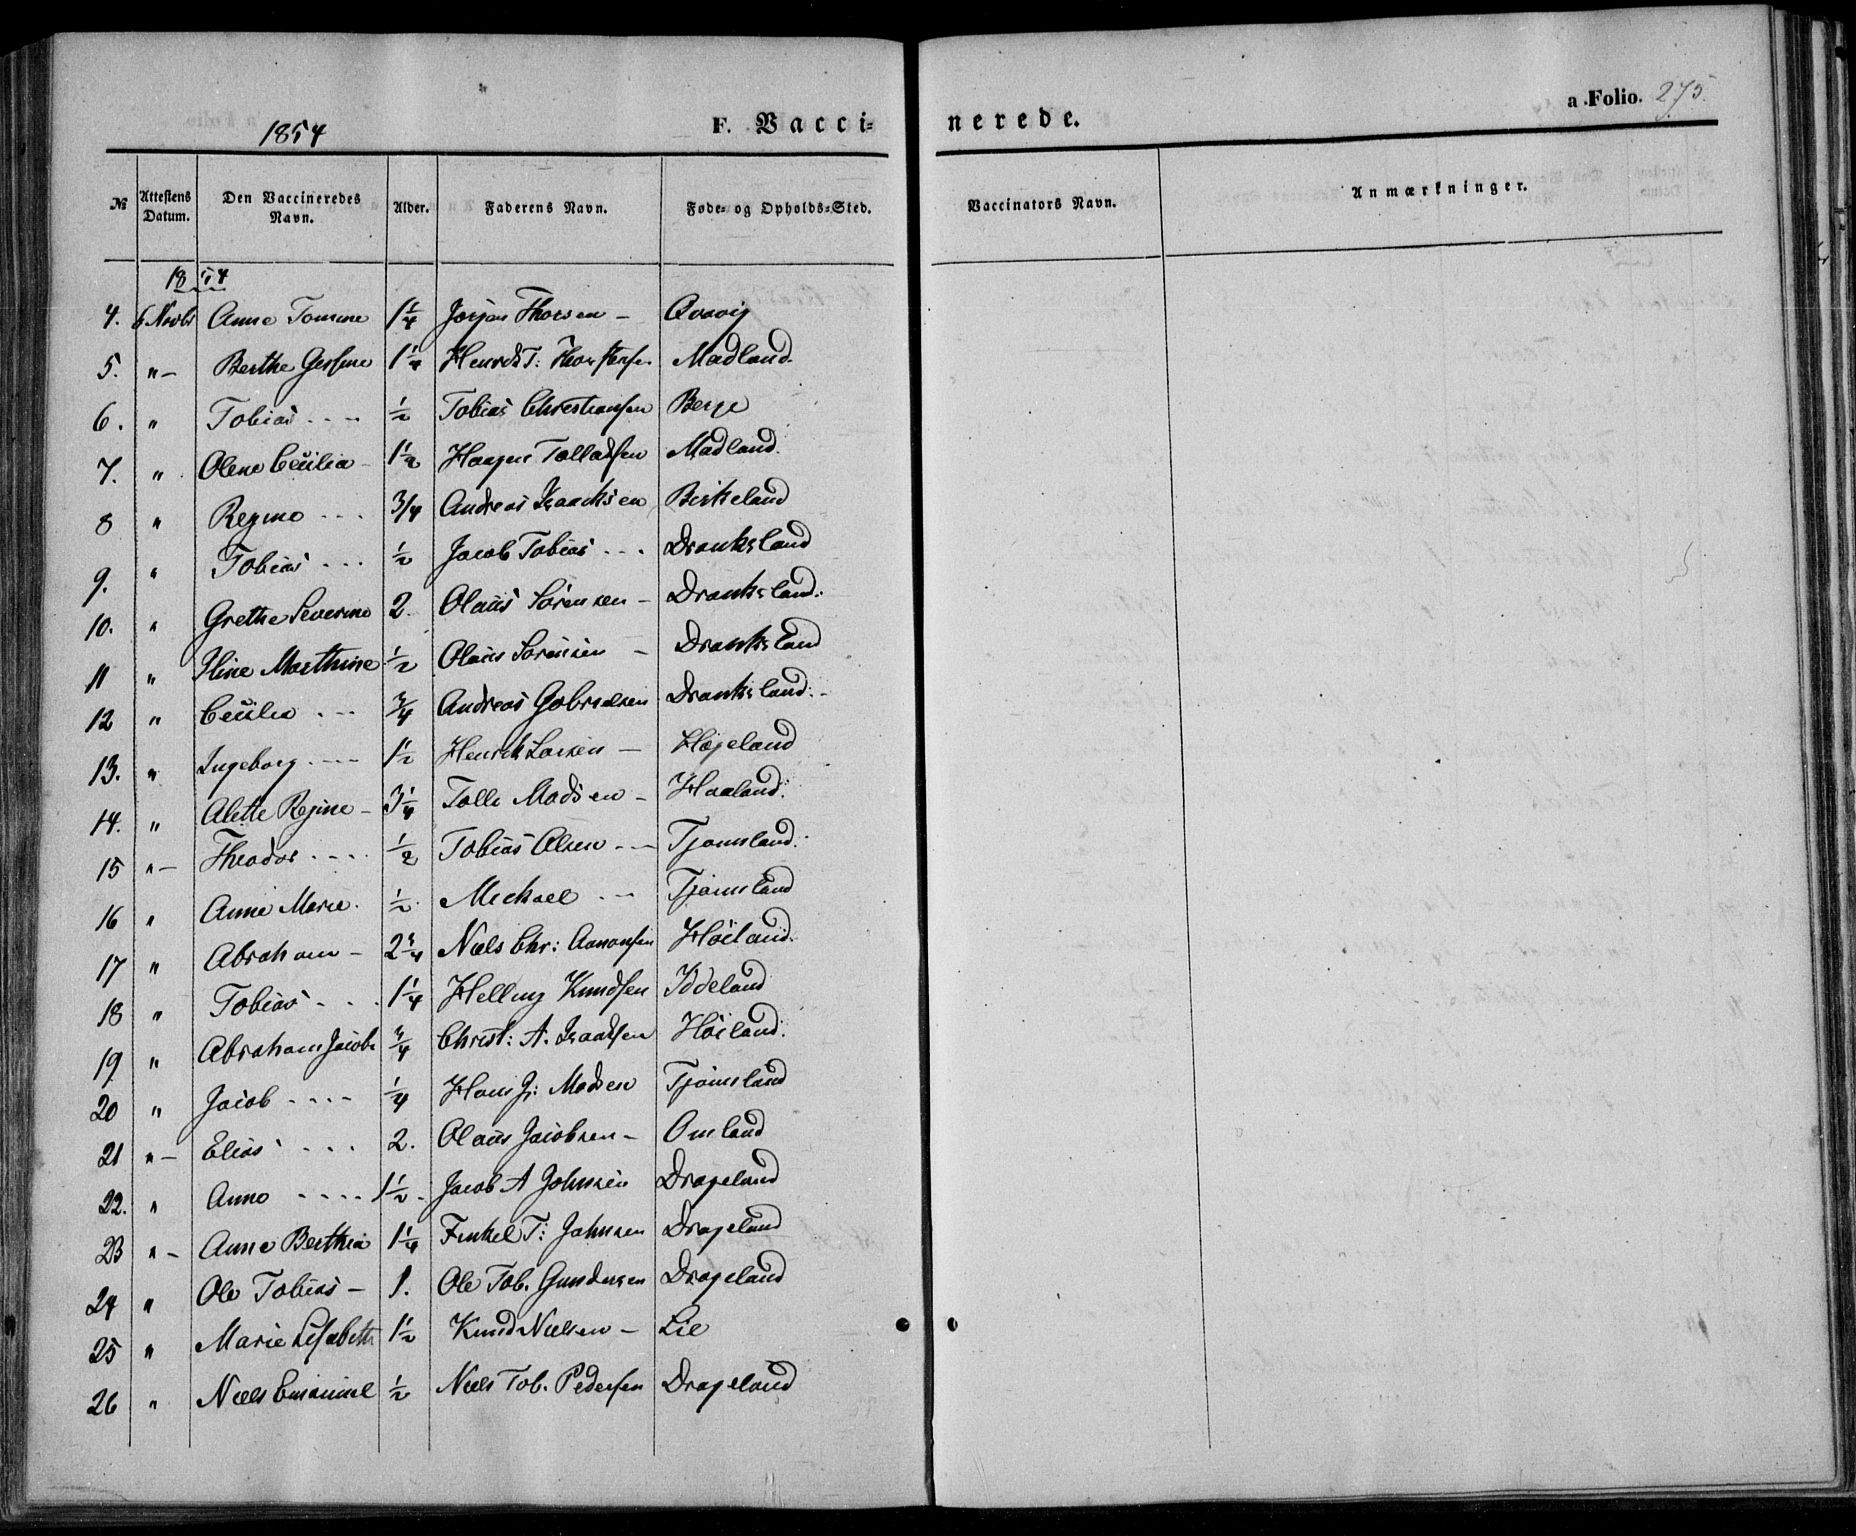 1854
F. Vacci-
nerede.
a Folio. 275.
№ | Attestens Datum. | Den Vaccineredes Navn. | Alder. | Faderens Navn. | Føde- og Opholds-Sted. | Vaccinators Navn. | Anmærkninger.
1854
4. 6 Novbr Anne Tomine 1 1/4 Jørgen Thorsen - Qvavig
5. " - Berthe Gesine 1 1/4 Henrik T: Thorkensen Madland.
6. " Tobias .... 1/2 Tobias Christiansen Berge
7. " Olene Cecilia - 1 1/2 Haagen Tolladsen Madland.
8 " Regine ... 3/4 Andreas Isaachsen Birkeland
9. " Tobias ... 1/2 Jacob Tobias ... Dranksland
10. " Grethe Severine 2. Olaus Sørensen - Dranksland.
11 " Stine Marthine 1/2 Olaus Sørensen - Dranksland
12 " Cecilie ... 3/4 Andreas Gabrielsen Dranksland.-
13. " Ingeborg .... 1 1/2 Henrik Larsen - Høgeland
14. " Alette Regine - 3 1/4 Tolle Madsen - Haaland.
15 " - Theodor .... 1/2 Tobias Olsen -- Tjomsland.
16 " Anne Marie. 1/2. Michael -- Tjomsland
17 " Abraham - 2 3/4 Niels Chr: Aanonsen Höiland.
18 " Tobias ... 1 1/4 Helling Knudsen Iddeland
19 " Abraham Jacob 3/4 Christ: A. Isaachsen Höiland.
20 " Jacob .... 1/4 Hans J: Madsen Tjomsland
21 " - Elias .... 2. Olaus Jacobsen - Omland
22. " Anne .... 1 1/2 - Jacob A Johnsen Drageland
23 " - Anne Berthea 1 1/4 Finkel T: Johnsen Drageland
24 " Ole Tobias - 1. Ole Tob. Gundersen Drageland
25 " Marie Lisabeth 1 1/2 Knud Nielsen - Lie
26 " Niels Emanuel 1/2 Niels Tob. Pedersen Drageland